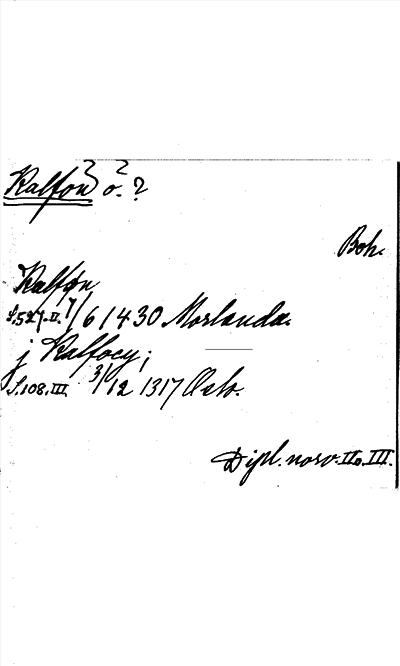 Kalfön ö. ?
Boh.
Kalføn
S. 527. II. 7/6 1430 Morlanda.
j Kalfoey;
S. 108. III. 3/12 1317 Oslo.
Dipl. norv. II o. III.